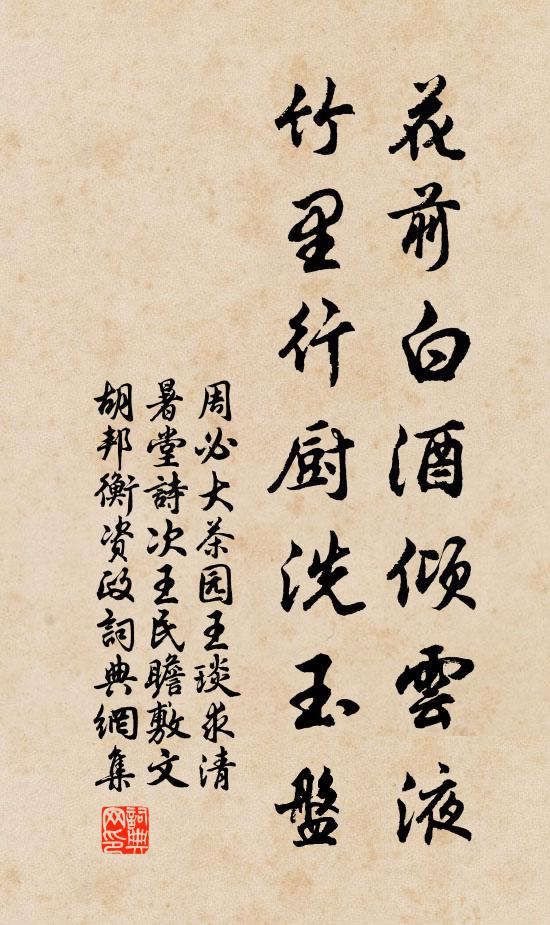 花前白酒傾雲液
竹里行厨洗玉盤
周必大茶园王琰求清
暑堂詩次王民瞻敷文
胡邦衡资政詞典網集
詞典网印